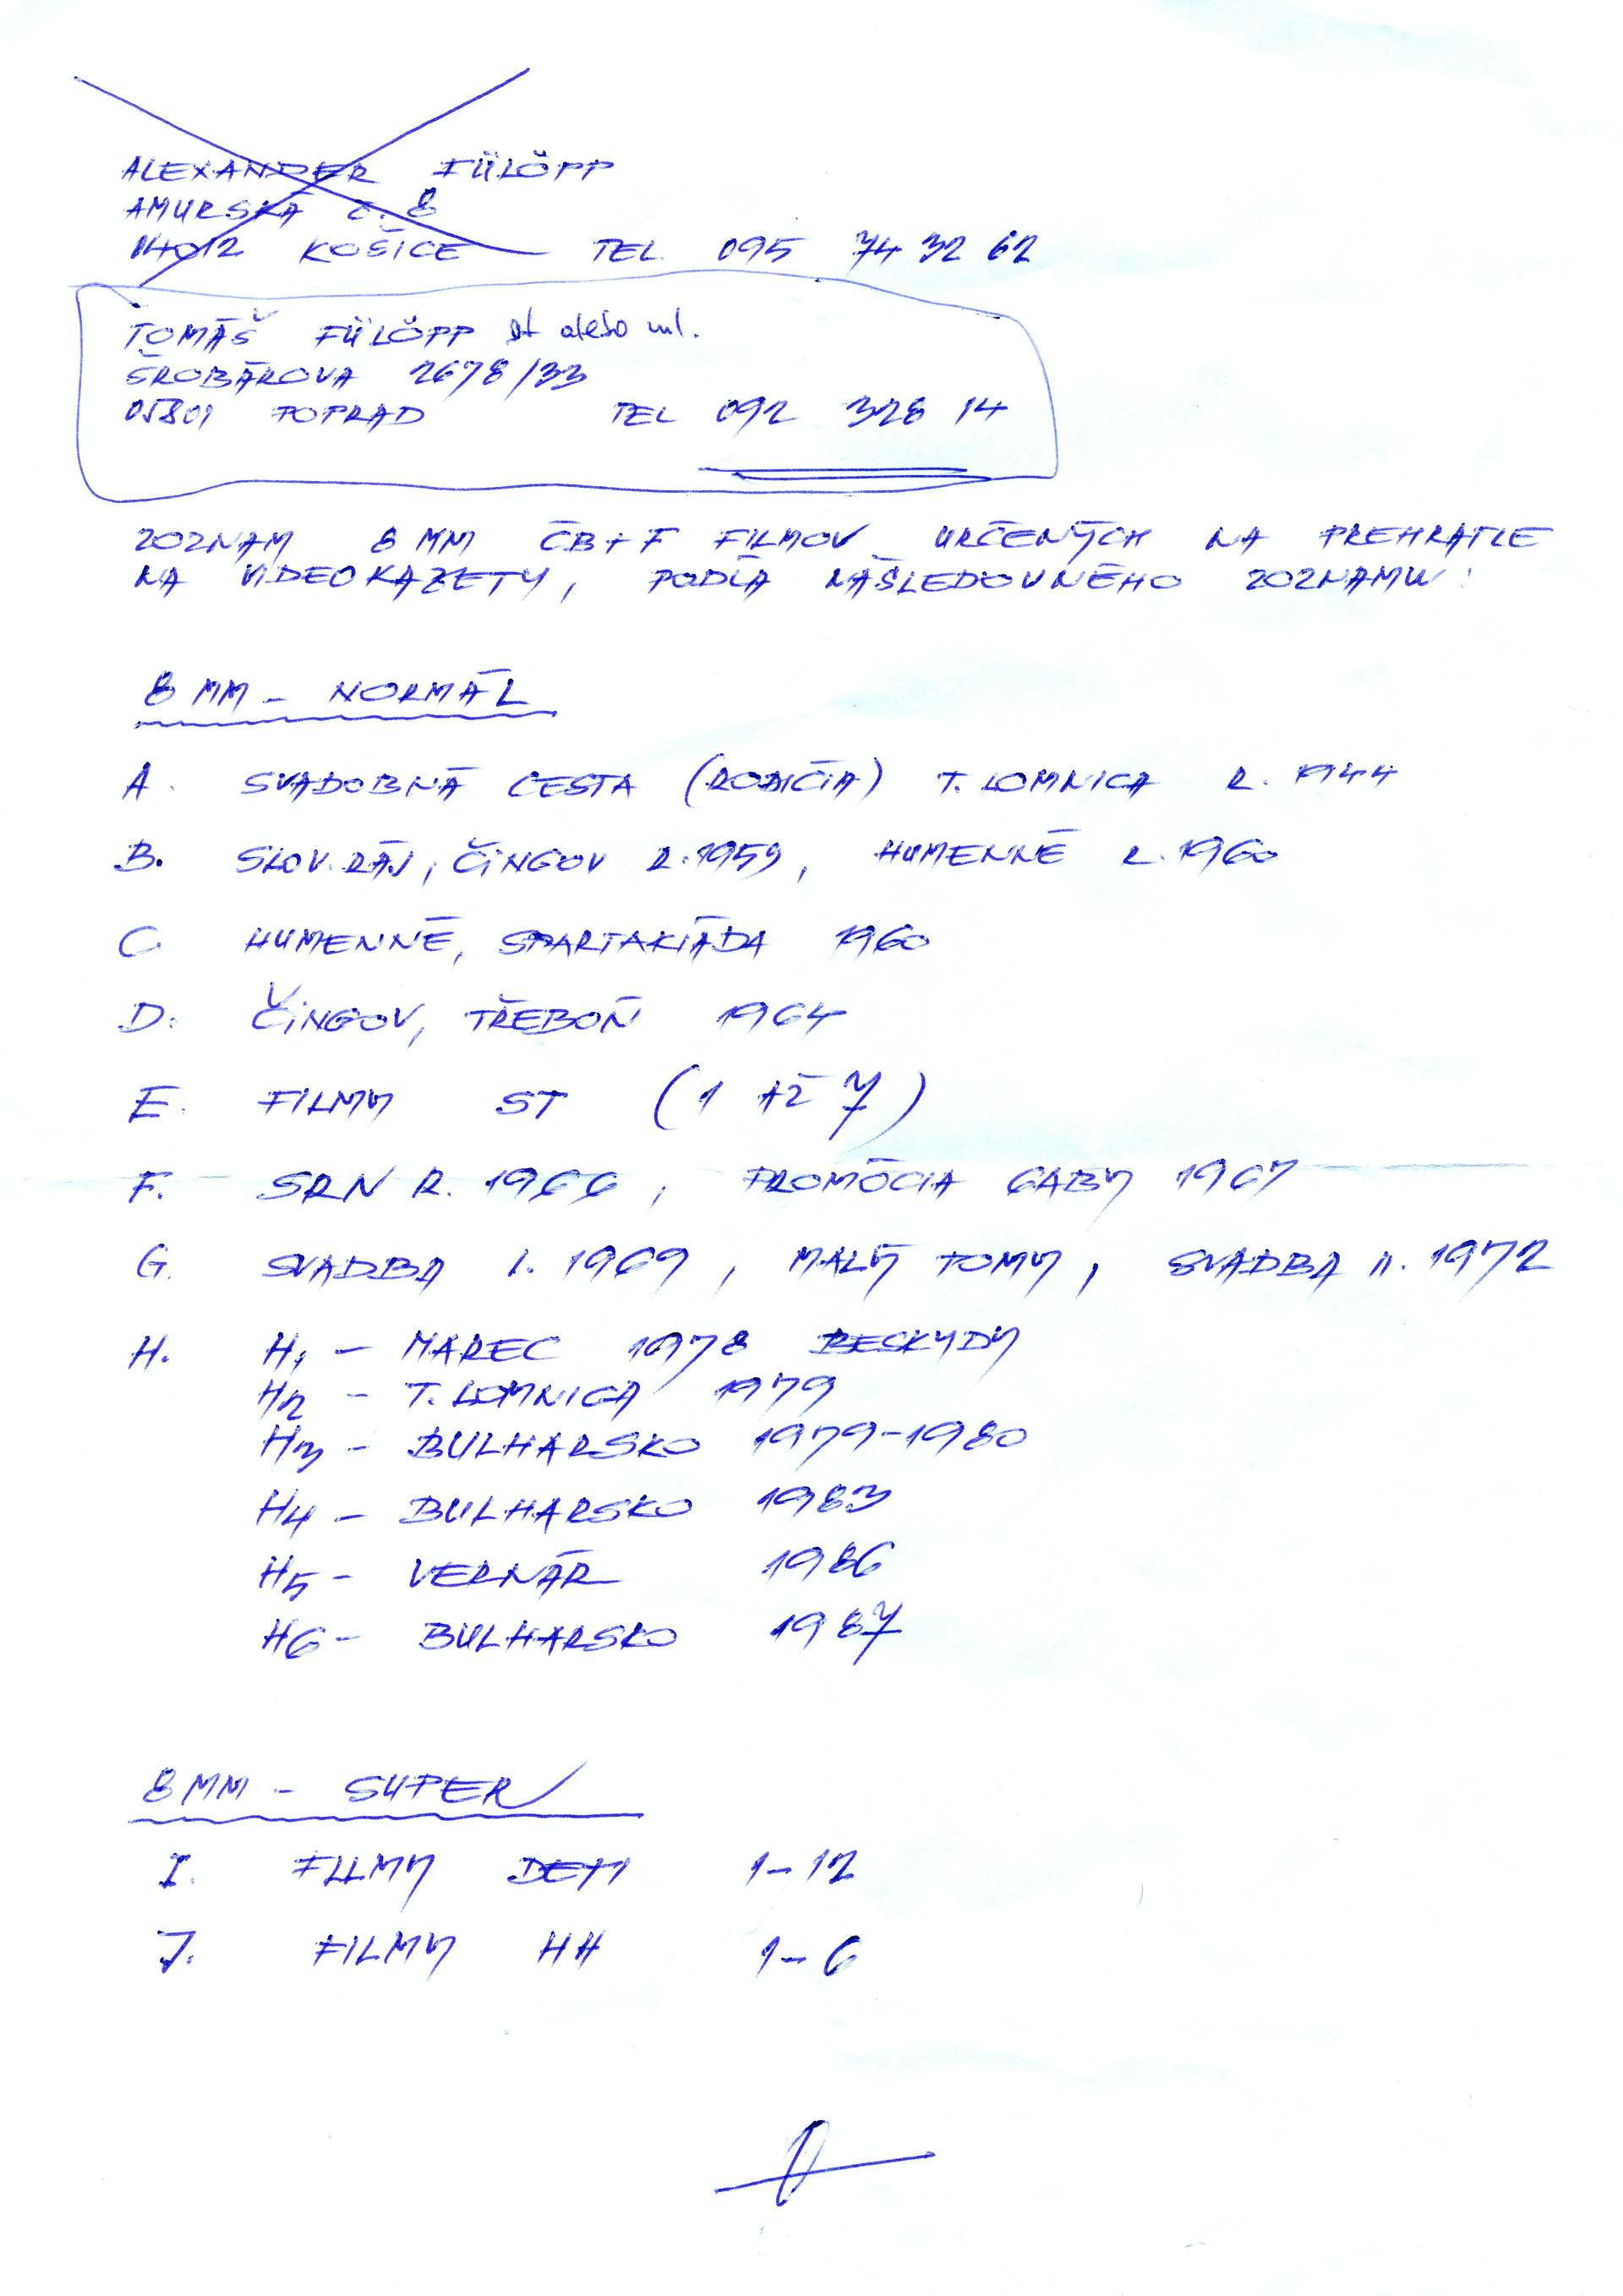 ALEXANDER FÜLÖPP
AMURSKÁ Č. 8
04012 KOŠICE TEL. 095 74 32 62
TOMÁŠ FÜLÖPP st alebo ml.
ŠROBÁROVA 2678/33
05801 POPRAD TEL 092 328 14
ZOZNAM 8 MM ČB+F FILMOV URČENÝCH NA PREHRATIE
NA VIDEOKAZETY, PODĽA NÁSLEDOVNÉHO ZOZNAMU:
8 MM - NORMÁL
A. SVADOBNÁ CESTA (RODIČIA) T. LOMNICA R. 1944
B. SLOV. RÁJ, ČINGOV R. 1959, HUMENNÉ R. 1960
C HUMENNÉ, SPARTAKIÁDA 1960
D. ČINGOV, TŘEBOŇ 1964
E. FILMY ST (1 AŽ 7)
F. SRN R. 1966, PROMÓCIA GABY 1967
G. SVADBA I. 1969, MALÝ TOMY, SVADBA II. 1972
H. H1 - MAREC 1978 BESKYDY
H2 - T. LOMNICA 1979
H3 - BULHARSKO 1979-1980
H4 - BULHARSKO 1983
H5 - VERNÁR 1986
H6 - BULHARSKO 1987
8 MM - SUPER
I. FILMY DETI 1-12
J. FILMY HH 1-6